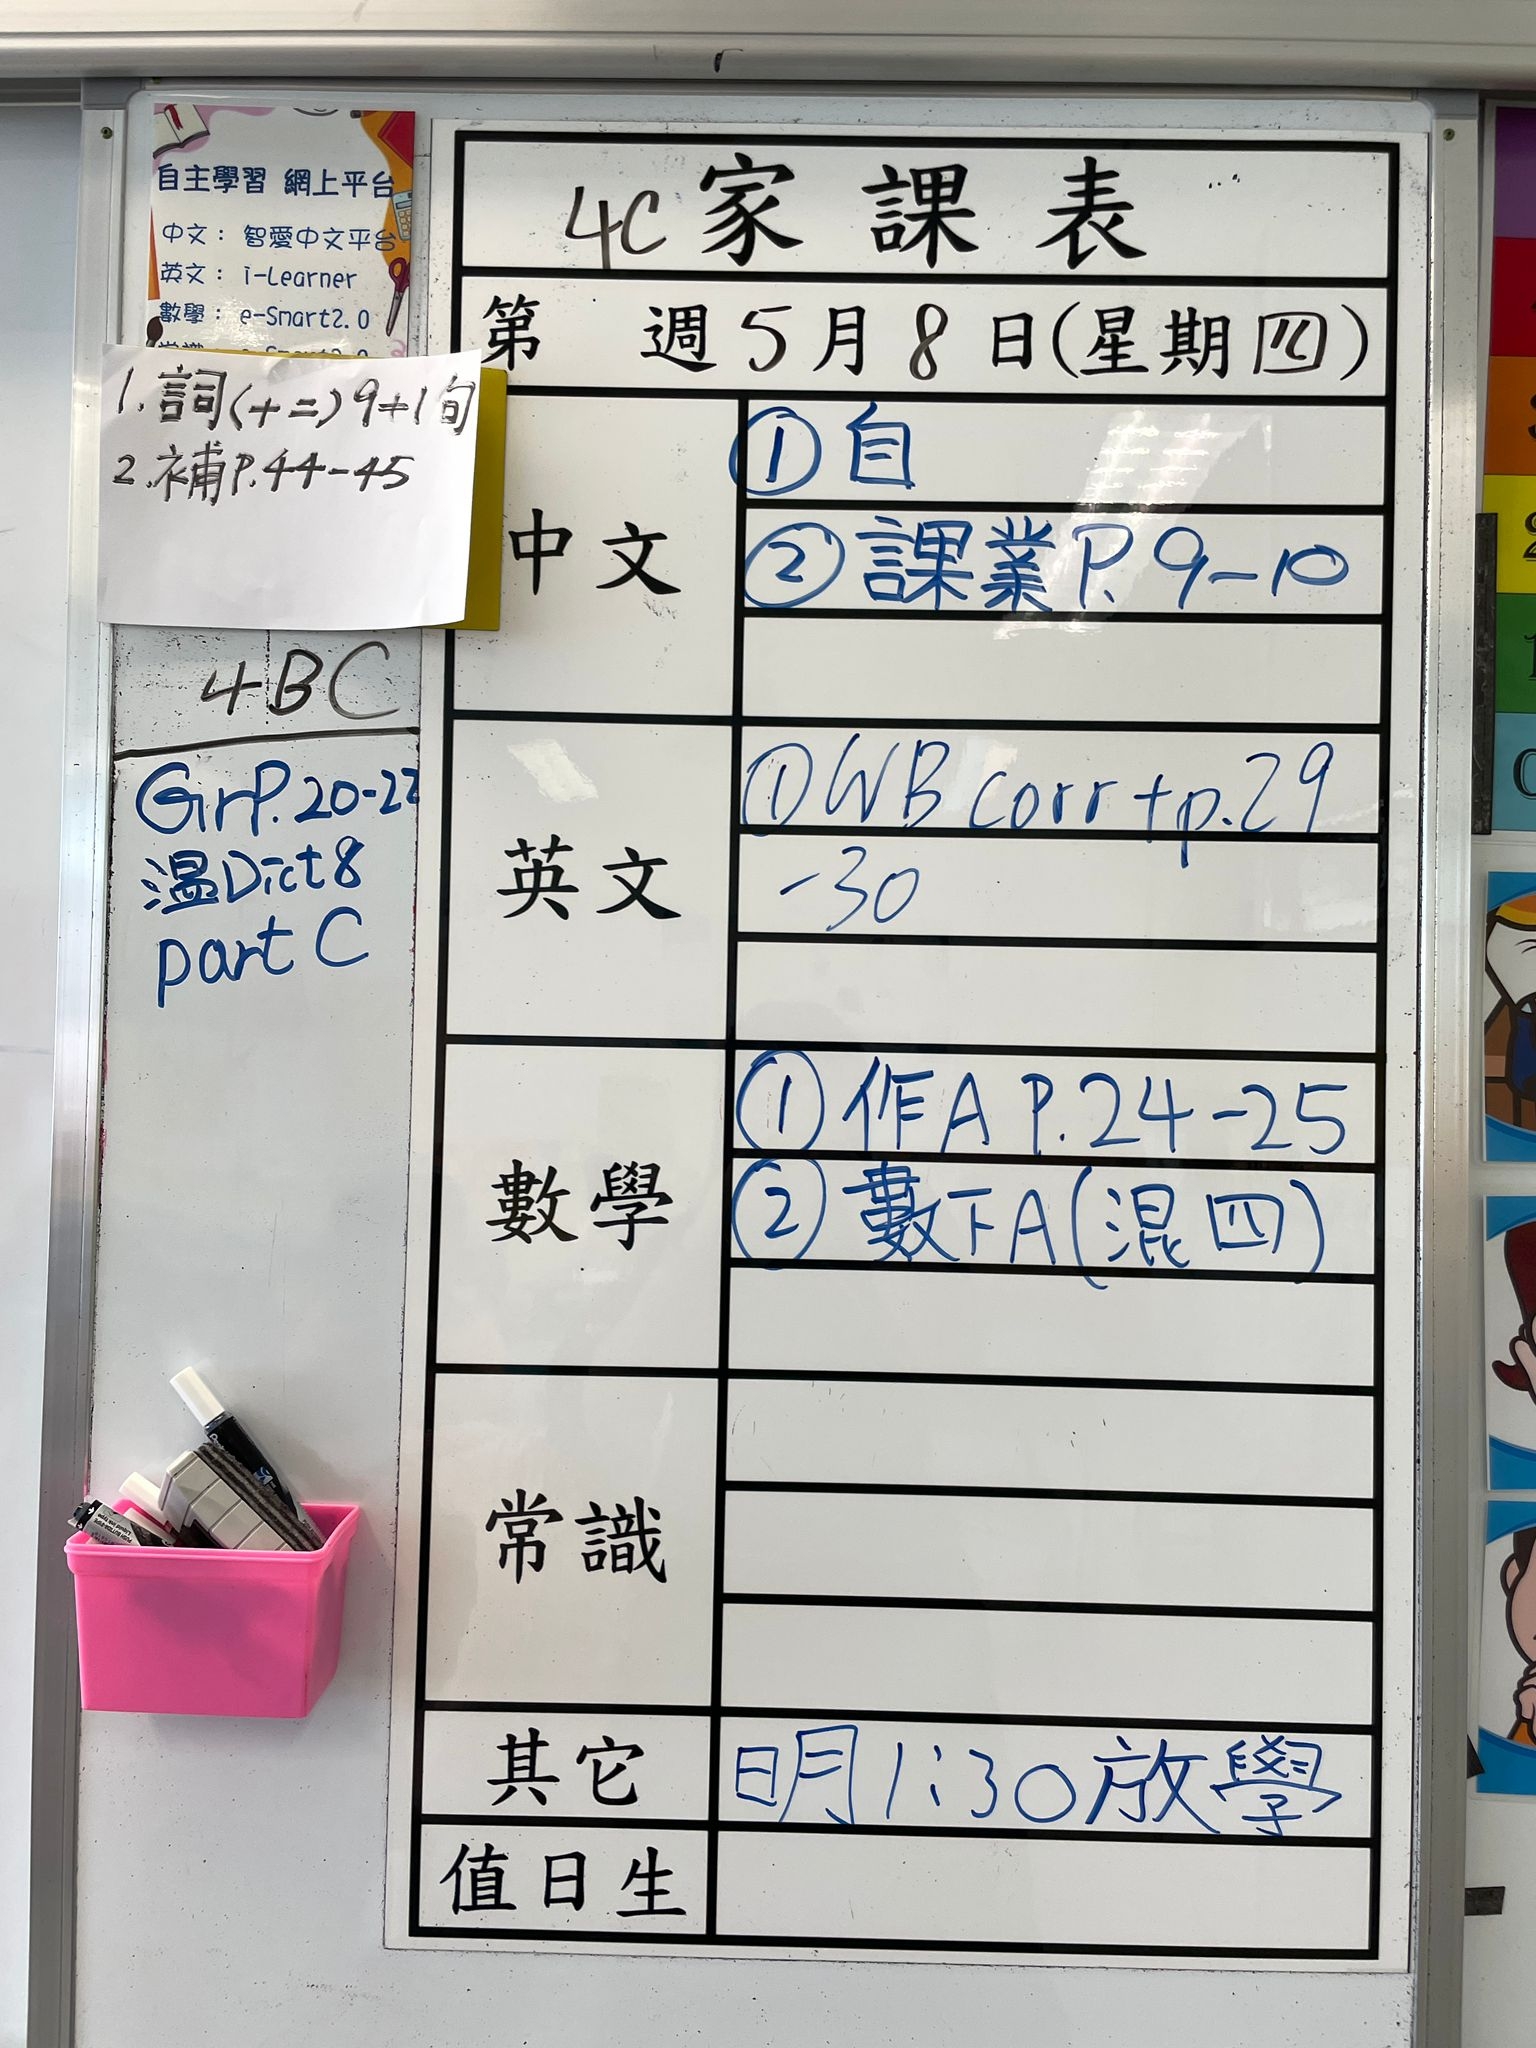 自主學習 網上平台
中文： 智愛中文平台
英文： i-Learner
數學： e-Smart2.0
1. 詞(十二) 9+1句
2. 補P.44-45
4BC
GrP.20-22
溫Dict8
part C
4C 家課表
第 週 5月8日(星期四)
中文
① 自
② 課業P. 9-10
英文
① WB corr + p.29
-30
數學
① 作A P.24-25
② 數下A(混四)
常識
其它
明1:30放學
值日生